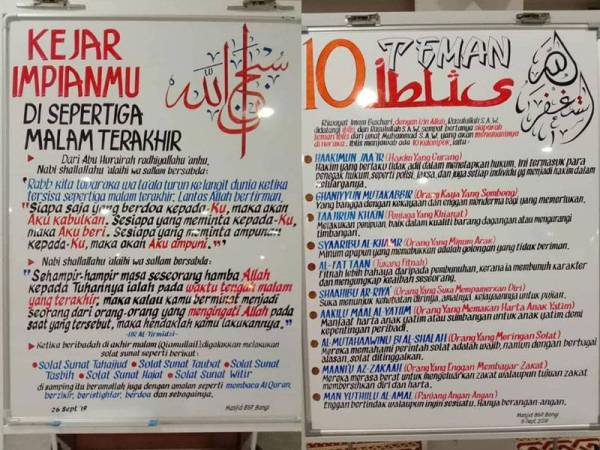 KEJAR
IMPIANMU
DI SEPERTIGA
MALAM TERAKHIR
سبحان الله
Dari Abu Hurairah radhiyallahu 'anhu,
Nabi shallallahu 'alaihi wa sallam bersabda:
"Rabb kita tabaraka wa ta'ala turun ke langit dunia ketika
tersisa sepertiga malam terakhir. Lantas Allah berfirman,
"Siapa saja yang berdoa kepada-Ku, maka akan
Aku kabulkan. Sesiapa yang meminta kepada-Ku,
maka Aku beri. Sesiapa yang meminta ampunan
kepada-Ku, maka akan Aku ampuni."
Nabi shallallahu 'alaihi wa sallam bersabda:
"Sehampir-hampir masa seseorang hamba Allah
kepada Tuhannya ialah pada waktu tengah malam
yang terakhir, maka kalau kamu berminat menjadi
seorang dari orang-orang yang mengingati Allah pada
saat yang tersebut, maka hendaklah kamu lakukannya."
-HR Al-Tirmidzi-
Ketika beribadah di akhir malam (Qiamullail) digalakkan melakukan
solat sunat seperti berikut:
• Solat Sunat Tahajjud • Solat Sunat Taubat • Solat Sunat
Tasbih • Solat Sunat Hajat • Solat Sunat Witir
di samping itu beramallah juga dengan amalan seperti membaca Al Quran,
berzikir, beristighfar, berdoa dan sebagainya.
26 Sept '19
Masjid BSP Bangi
10 TEMAN
Iblis
استغفر الله
Riwayat Imam Buchari, dengan izin Allah, Rasulullah S.A.W.
didatangi iblis, dan Rasulullah S.A.W. sempat bertanya siaparah
teman iblis dari umat Muhammad S.A.W. yang akan menemaninya
di neraka. Iblis menjawab ada 10 kelompok, iaitu:
HAAKIMUN JAA'IR (Hakim Yang Curang)
Hakim yang berlaku tidak adil dalam menetapkan hukum. Ini termasuk para
penegak hukum, seperti polis, jaksa, dan juga setiap individu yg menjadi hakim dalam
keluarganya.
GHANIYYUN MUTAKABBIR (Orang Kaya Yang Sombong)
Yang bangga dengan kekayaan dan enggan menderma bagi yang memerlukan.
TAAJIRUN KHAIN (Peniaga Yang Khianat)
Melakukan penipuan, baik dalam kualiti barang dagangan atau mengurangi
timbangan.
SYAARIBU AL-KHAMR (Orang Yang Minum Arak)
Minum apapun yang memabukkan adalah golongan yang tidak beriman.
AL-FATTAAN (Tukang Fitnah)
Fitnah lebih bahaya daripada pembunuhan, kerana ia membunuh karakter
dan mengungkap keaiban seseorang.
SHAAHIBU AR-RIYA' (Orang Yang Suka Mempamerkan Diri)
Suka menunjuk kehebatan dirinya, amalnya, kekayaannya untuk pujian.
AAKILU MAAL AL-YATIIM (Orang Yang Memakan Harta Anak Yatim)
Manfaat harta anak yatim atau sumbangan untuk anak yatim demi
kepentingan peribadi.
AL-MUTAHAAWINU BI AL-SHALAH (Orang Yang Meringan Solat)
Mereka memahami perintah solat adalah wajib, namun dengan berbagai
alasan, solat ditinggalkan.
MAANI'U AL-ZAKAAH (Orang Yang Enggan Membayar Zakat)
Mereka merasa berat untuk mengeluarkan zakat walaupun tujuan zakat
membersihkan diri dan harta.
MAN YUTHIILU AL-AMAL (Panjang Angan Angan)
Enggan bertindak walaupun ingin sesuatu. Hanya berangan-angan.
Masjid BSP, Bangi